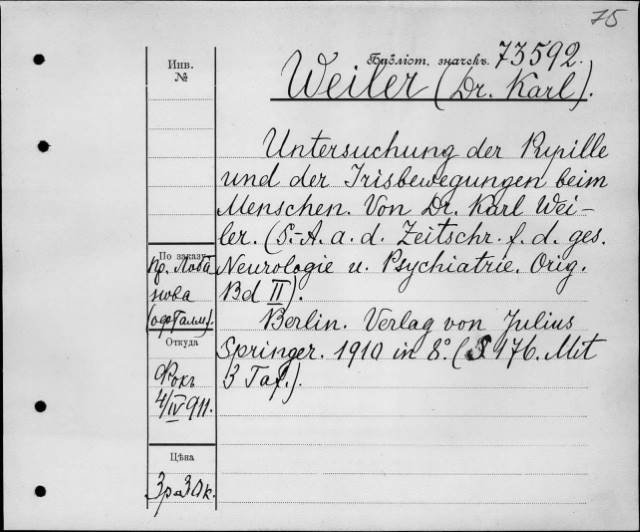 75
Инв.
№
Бабліот. значекъ. 73592.
Weiler (Dr. Karl).
Untersuchung der Pupille
und der Irisbewegungen beim
Menschen. Von Dr. Karl Wei-
ler. (S.-A. a. d. Zeitschr. f. d. ges.
Neurologie u. Psychiatrie. Orig.
Bd II).
Berlin. Verlag von Julius
Springer. 1910 in 8° (S 176. Mit
3 Taf.).
По заказу
пр. Лоба
нова
(офталм).
Откуда
Фокъ
4/IV 911.
Цѣна
3 р 30 к.